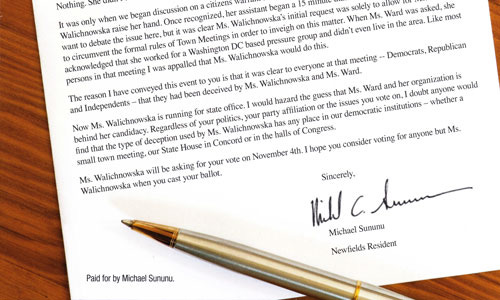 Nothing. She
It was only when we began discussion on a citizens warra
Walichnowska raise her hand. Once recognized, her assistant began a 15 minute
want to debate the issue here, but it was clear Ms. Walichnowska's initial request was solely to allow for M
to circumvent the formal rules of Town Meetings in order to inveigh on this matter. When Ms. Ward was asked, she
acknowledged that she worked for a Washington DC based pressure group and didn't even live in the area. Like most
persons in that meeting I was appalled that Ms. Walichnowska would do this.
The reason I have conveyed this event to you is that it was clear to everyone at that meeting -- Democrats, Republican
and Independents – that they had been deceived by Ms. Walichnowska and Ms. Ward.
Now Ms. Walichnowska is running for state office. I would hazard the guess that Ms. Ward and her organization is
behind her candidacy. Regardless of your politics, your party affiliation or the issues you vote on, I doubt anyone would
find that the type of deception used by Ms. Walichnowska has any place in our democratic institutions – whether a
small town meeting, our State House in Concord or in the halls of Congress.
Ms. Walichnowska will be asking for your vote on November 4th. I hope you consider voting for anyone but Ms.
Walichnowska when you cast your ballot.
Sincerely,
Michael Sununu
Newfields Resident
Paid for by Michael Sununu.